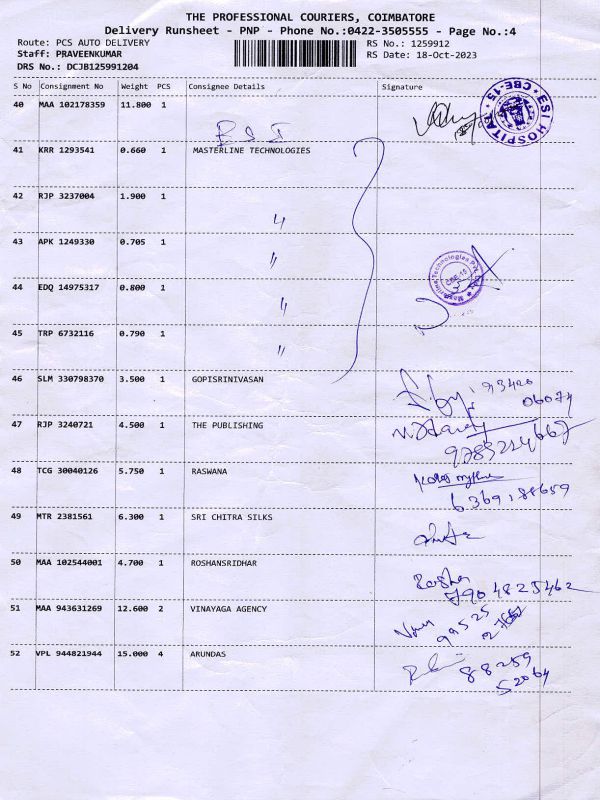 THE PROFESSIONAL COURIERS, COIMBATORE
Delivery Runsheet - PNP - Phone No.:0422-3505555 - Page No.:4
Route: PCS AUTO DELIVERY RS No.: 1259912
Staff: PRAVEENKUMAR RS Date: 18-Oct-2023
DRS No.: DCJB125991204
S No Consignment No Weight PCS Consignee Details Signature
40 MAA 102178359 11.800 1
ESI
ESI HOSPITAL CBE-15
41 KRR 1293541 0.660 1 MASTERLINE TECHNOLOGIES
42 RJP 3237004 1.900 1
"
43 APK 1249330 0.705 1
"
44 EDQ 14975317 0.800 1
"
Masterline Technologies Pvt Ltd CBE-15
45 TRP 6732116 0.790 1
"
46 SLM 330798370 3.500 1 GOPISRINIVASAN
93420
06074
47 RJP 3240721 4.500 1 THE PUBLISHING
9789214667
48 TCG 30040126 5.750 1 RASWANA
6369188659
49 MTR 2381561 6.300 1 SRI CHITRA SILKS
50 MAA 102544001 4.700 1 ROSHANSRIDHAR
7904825462
51 MAA 943631269 12.600 2 VINAYAGA AGENCY
99525
52 VPL 944821944 15.000 4 ARUNDAS
88259
52064